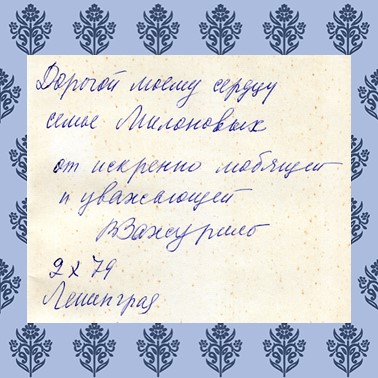 Дорогой моему сердцу
семье Милоновых
от искренно любящей
и уважающей
2 X 79
Ленинград